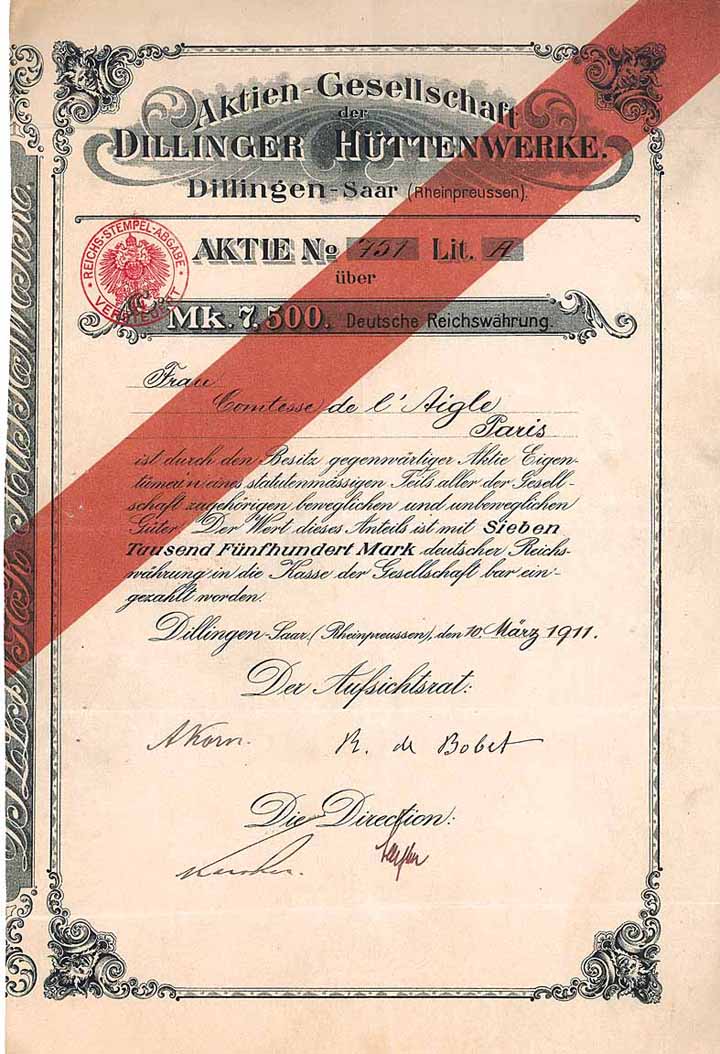 Aktien-Gesellschaft
der
DILLINGER HÜTTENWERKE.
Dillingen-Saar (Rheinpreussen).
REICHS-STEMPEL-ABGABE
VERSTEUERT
AKTIE No 751 Lit. A
über
Mk. 7,500. Deutsche Reichswährung.
Frau
Comtesse de l'Aigle
Paris
ist durch den Besitz gegenwärtiger Aktie Eigen-
tümerin eines statutenmässigen Teils aller der Gesell-
schaft zugehörigen beweglichen und unbeweglichen
Güter. Der Wert dieses Anteils ist mit Sieben
Tausend Fünfhundert Mark deutscher Reichs-
währung in die Kasse der Gesellschaft bar ein-
gezahlt worden.
Dillingen-Saar (Rheinpreussen), den 10. März 1911.
Der Aufsichtsrat:
AKorn. R. de Bobet
Die Direction: